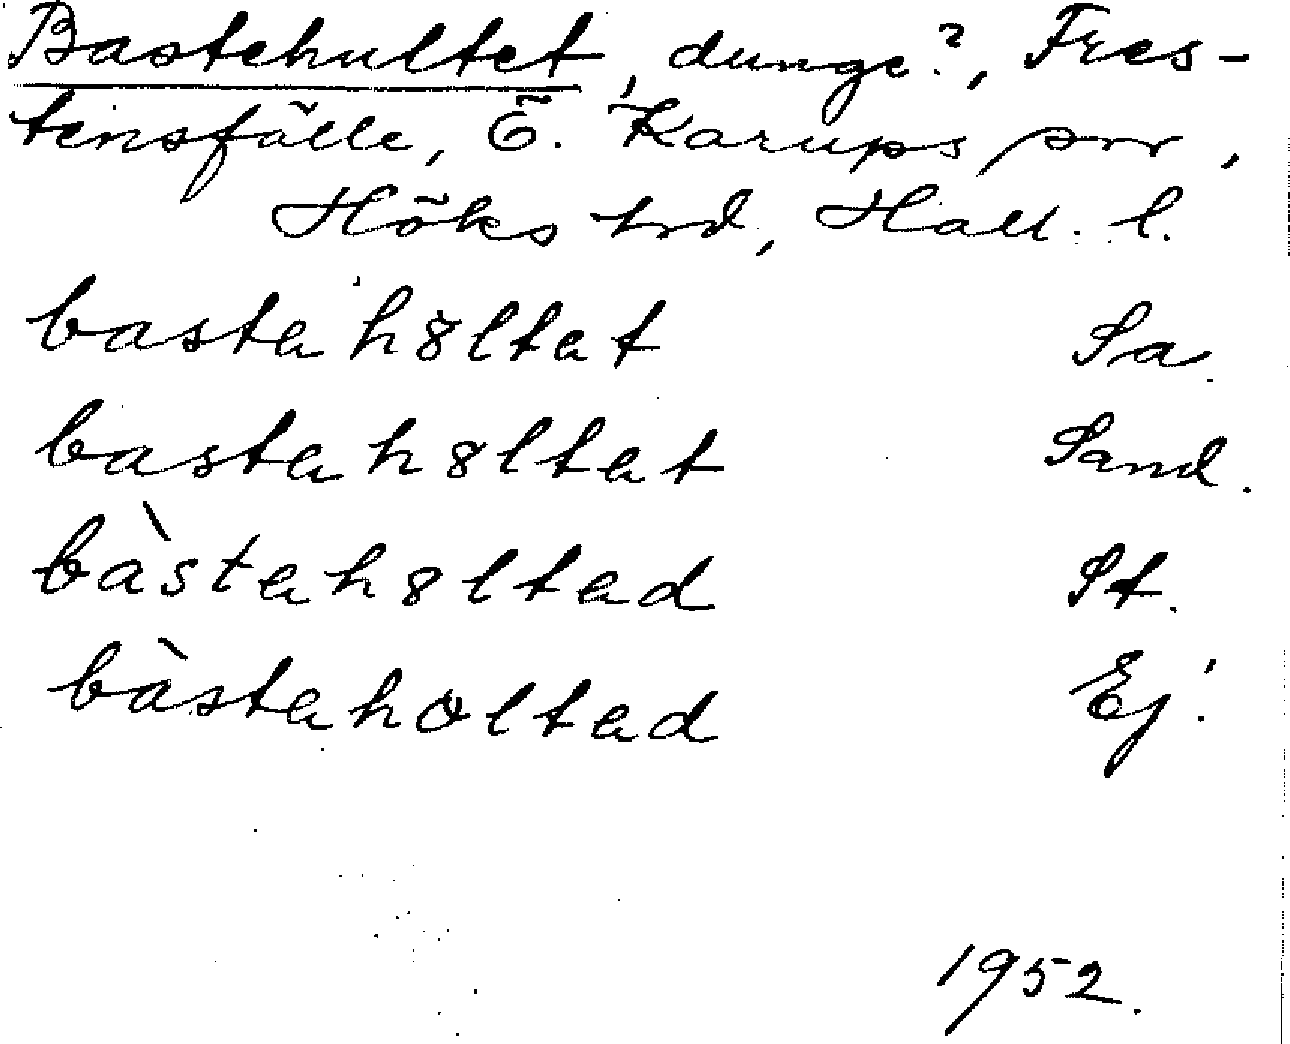 Bastehultet, dunge?, Fres-
tensfälle, Ö. Karups sn,
Höks hrd, Hall. l.
bastahöltat Sa.
bastah8ltat Sand.
bàstah8ltad St.
bàstahultad Ej.
1952.